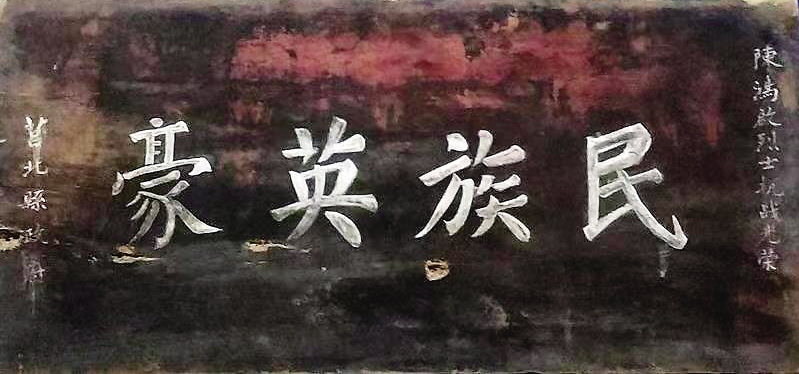 陳鴻烈士抗战光荣
民族英豪
莒北縣政府